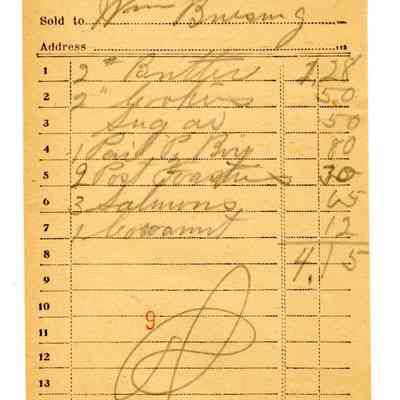 Sold to Wm Buesing
Address
1 2 # Butter 1,28
2 2 " Cookies 50
3 Sugar 50
4 1 Pail P. 80
5 2 Post Toasties 30
6 3 Salmons 65
7 1 Cocoanut 12
8 4,15
9
10
11
12
13
9